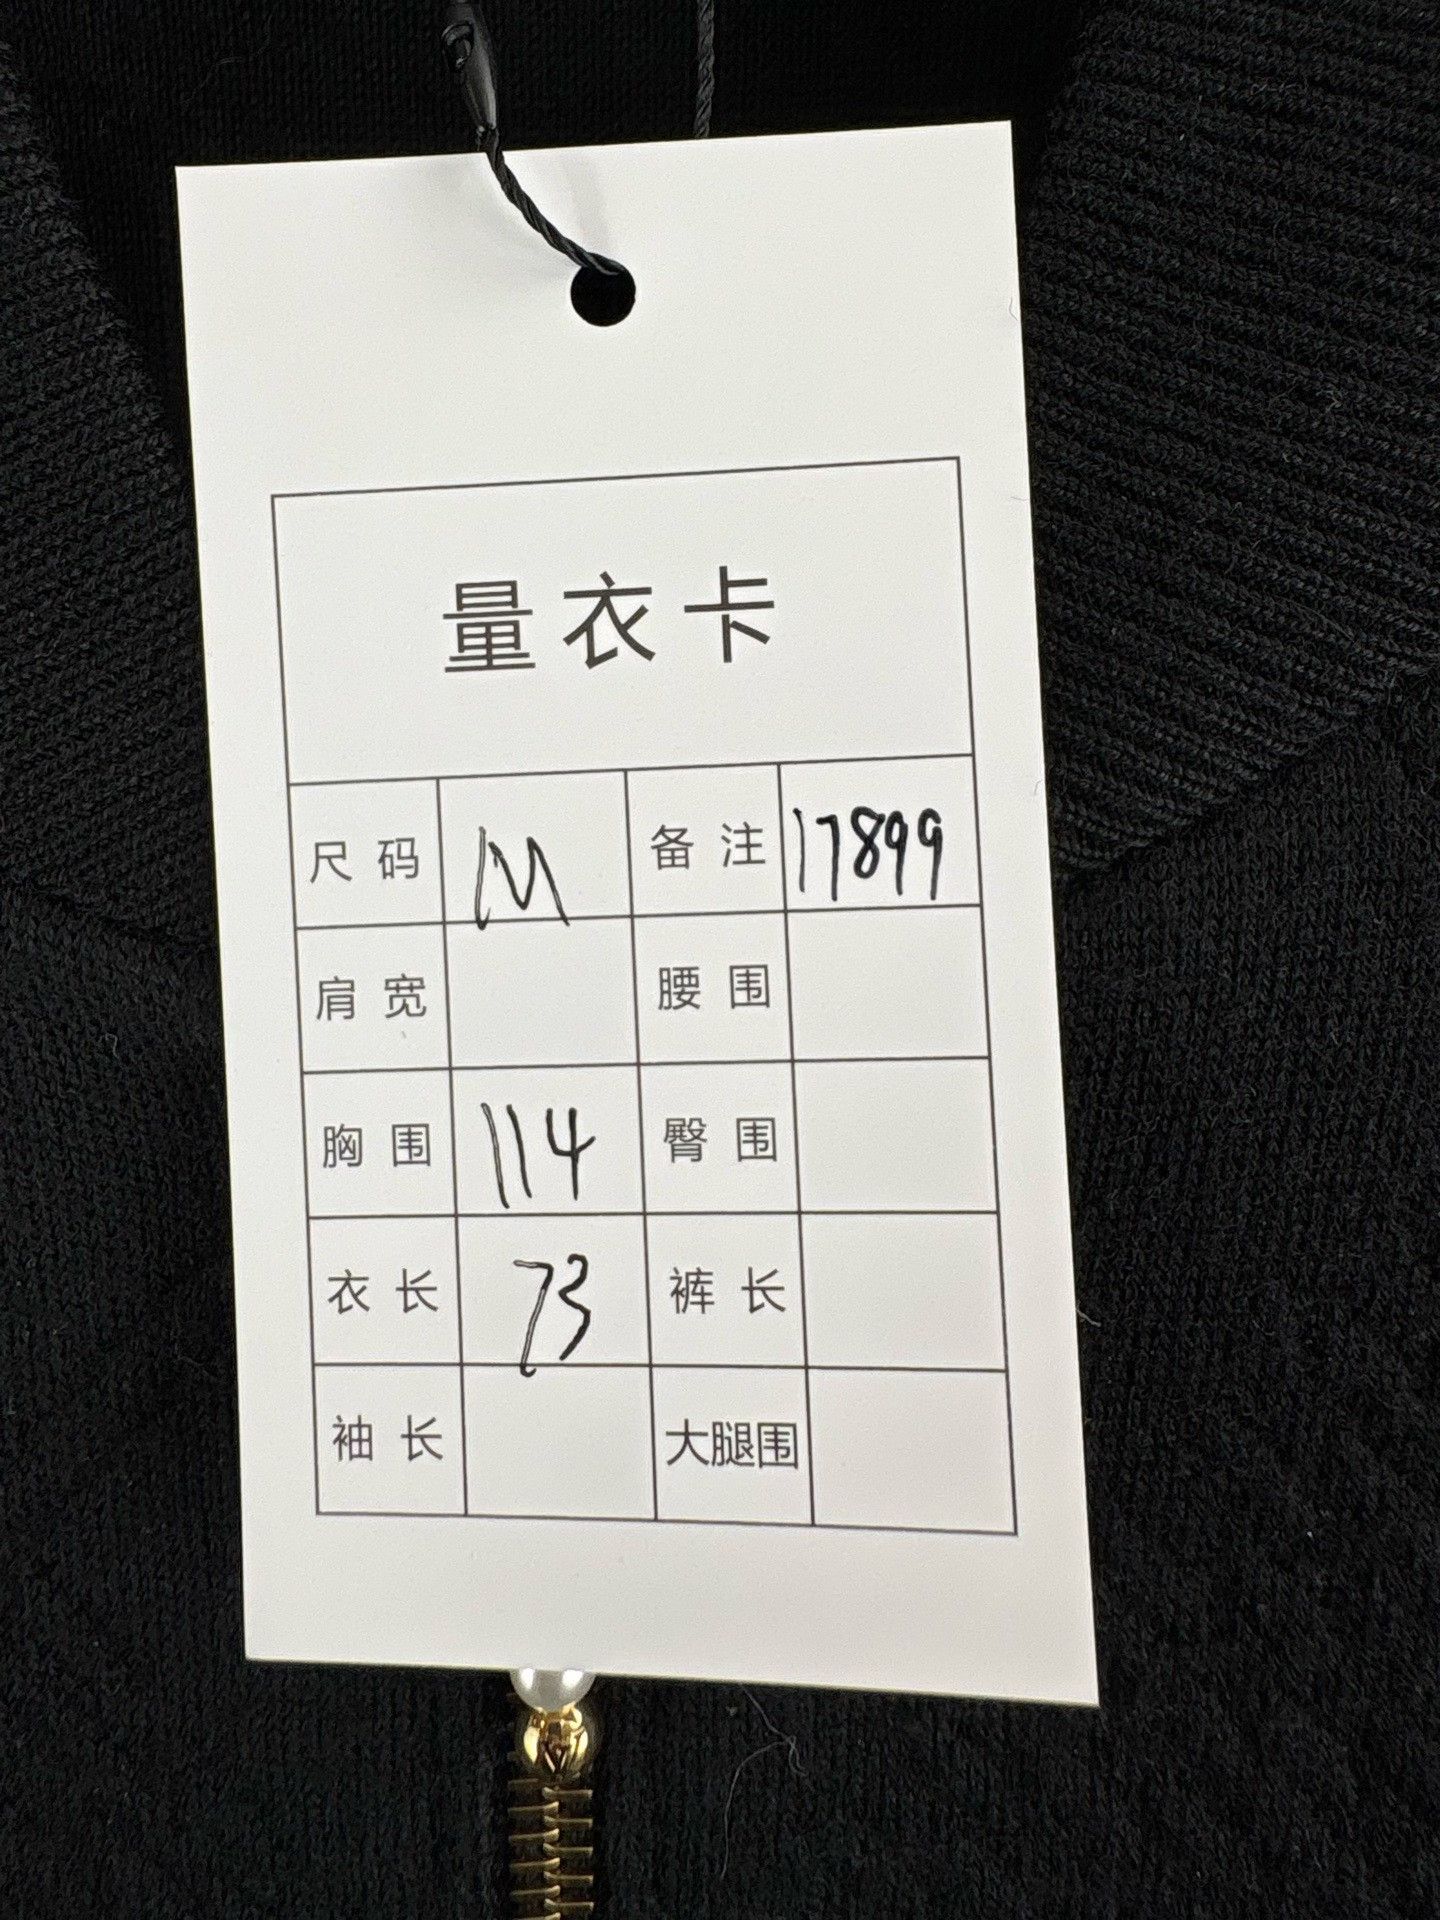 量衣卡
尺码 M 备注 17899
肩宽 腰围
胸围 114 臀围
衣长 73 裤长
袖长 大腿围